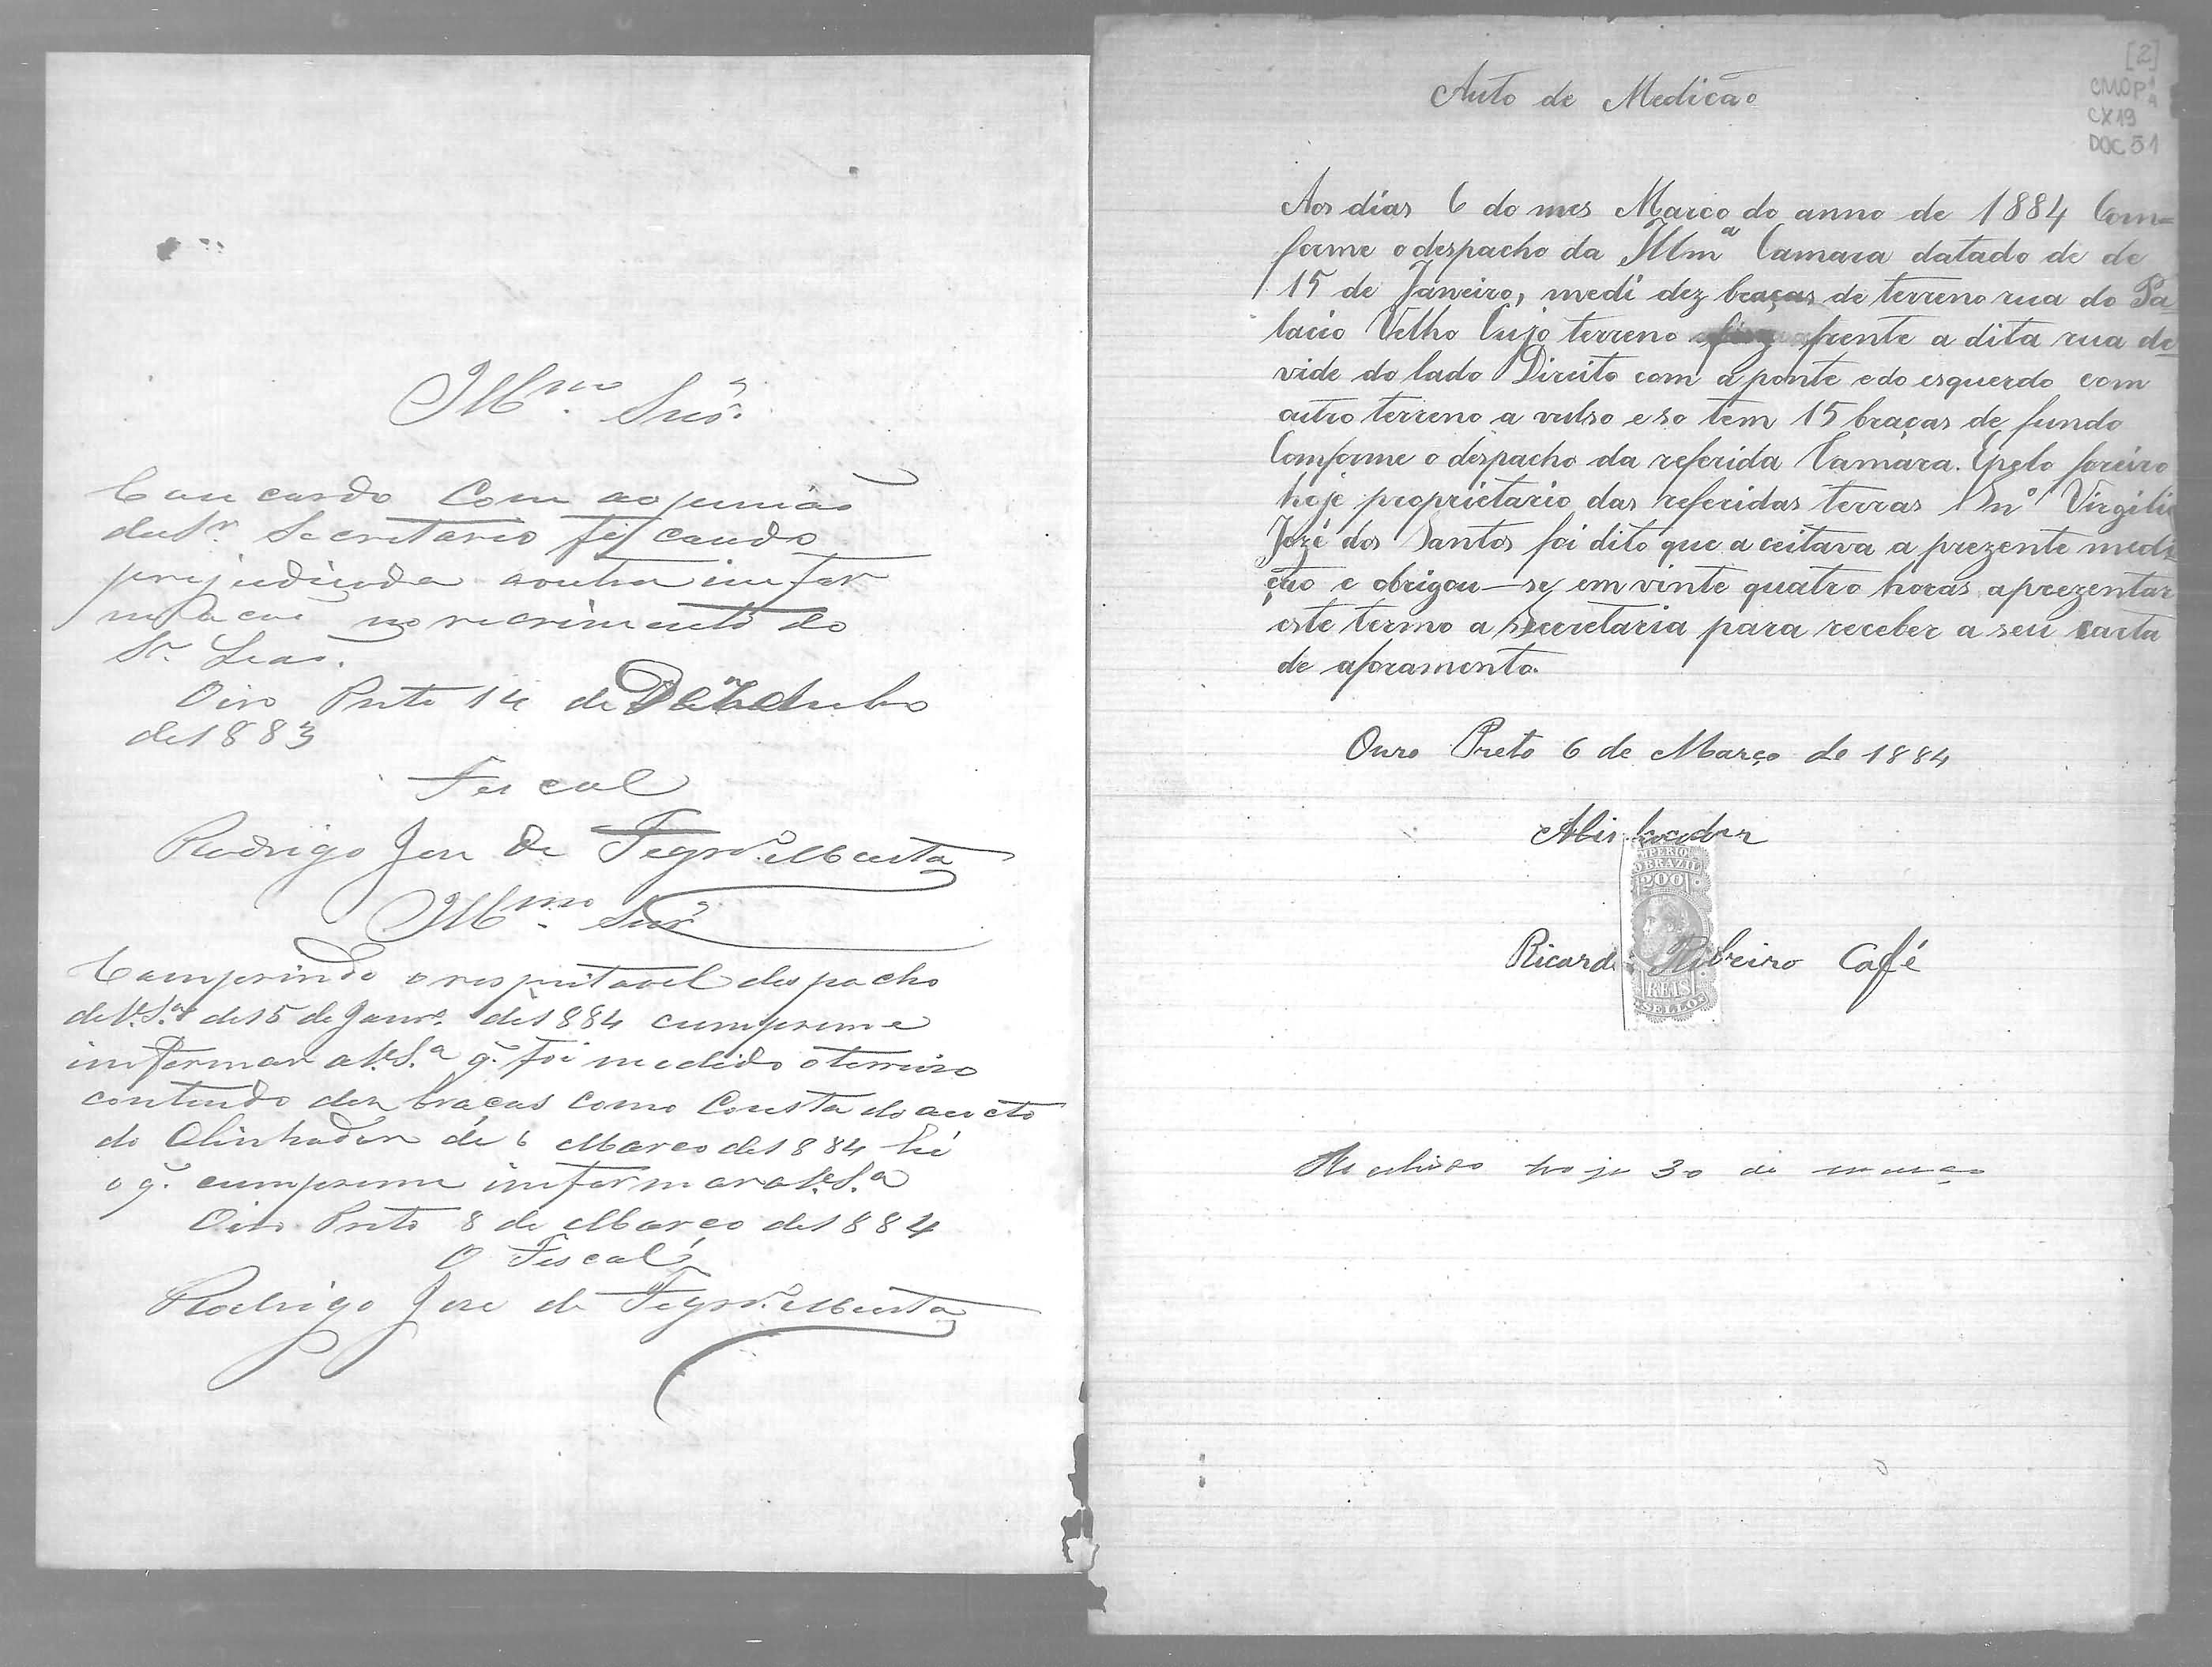 Illmos. Snrs.
Comcordo Com aopinião
do Sr. Secretario fi cando
prejudicada aoutra infor
mação no recrimento do
Sr. Leão.
Oiro Preto 14 de
de 1883
Fiscal
Rodrigo Jose de Figrdo. Murta
Illmos. Snrs
Comprindo o respeitavel despacho
de V.Sas de 15 de Janro. de 1884 cumpreme
informar a V.S.a q. foi medido o terreno
contendo dez braças como Consta do aucto
do Alinhador de 6 Marco de 1884 hé
o q. cumpreme informar a V.S.a
Oiro Preto 8 de Março de 1884
O Fiscal
Rodrigo Jose de Figrdo. Murta
[2]
CMOP
CX19
DOC 51
Auto de Medicão
Aos dias 6 do mes Marco do anno de 1884 Com=
forme o despacho da Illma Camara datado de de
15 de Janeiro, medi dez braças de terreno rua do Pa
lacio Velho Cujo terreno faz frente a dita rua de
vide do lado Direito com a ponte e do esquerdo com
outro terreno a vulso e so tem 15 braças de fundo
Comforme o despacho da referida Camara. E pelo foreiro
hoje proprietario das referidas terras Snº Virgilio
Jozé dos Santos foi dito que a ceitava a prezente medi
ção e obrigou-se em vinte quatro horas aprezentar
este termo a Secretaria para receber a seu carta
de aforamento.
Ouro Preto 6 de Março de 1884
IMPERIO
DO BRAZIL
200
REIS
SELLO
Ricardo Ribeiro Café
Recebido hoje 30 de março